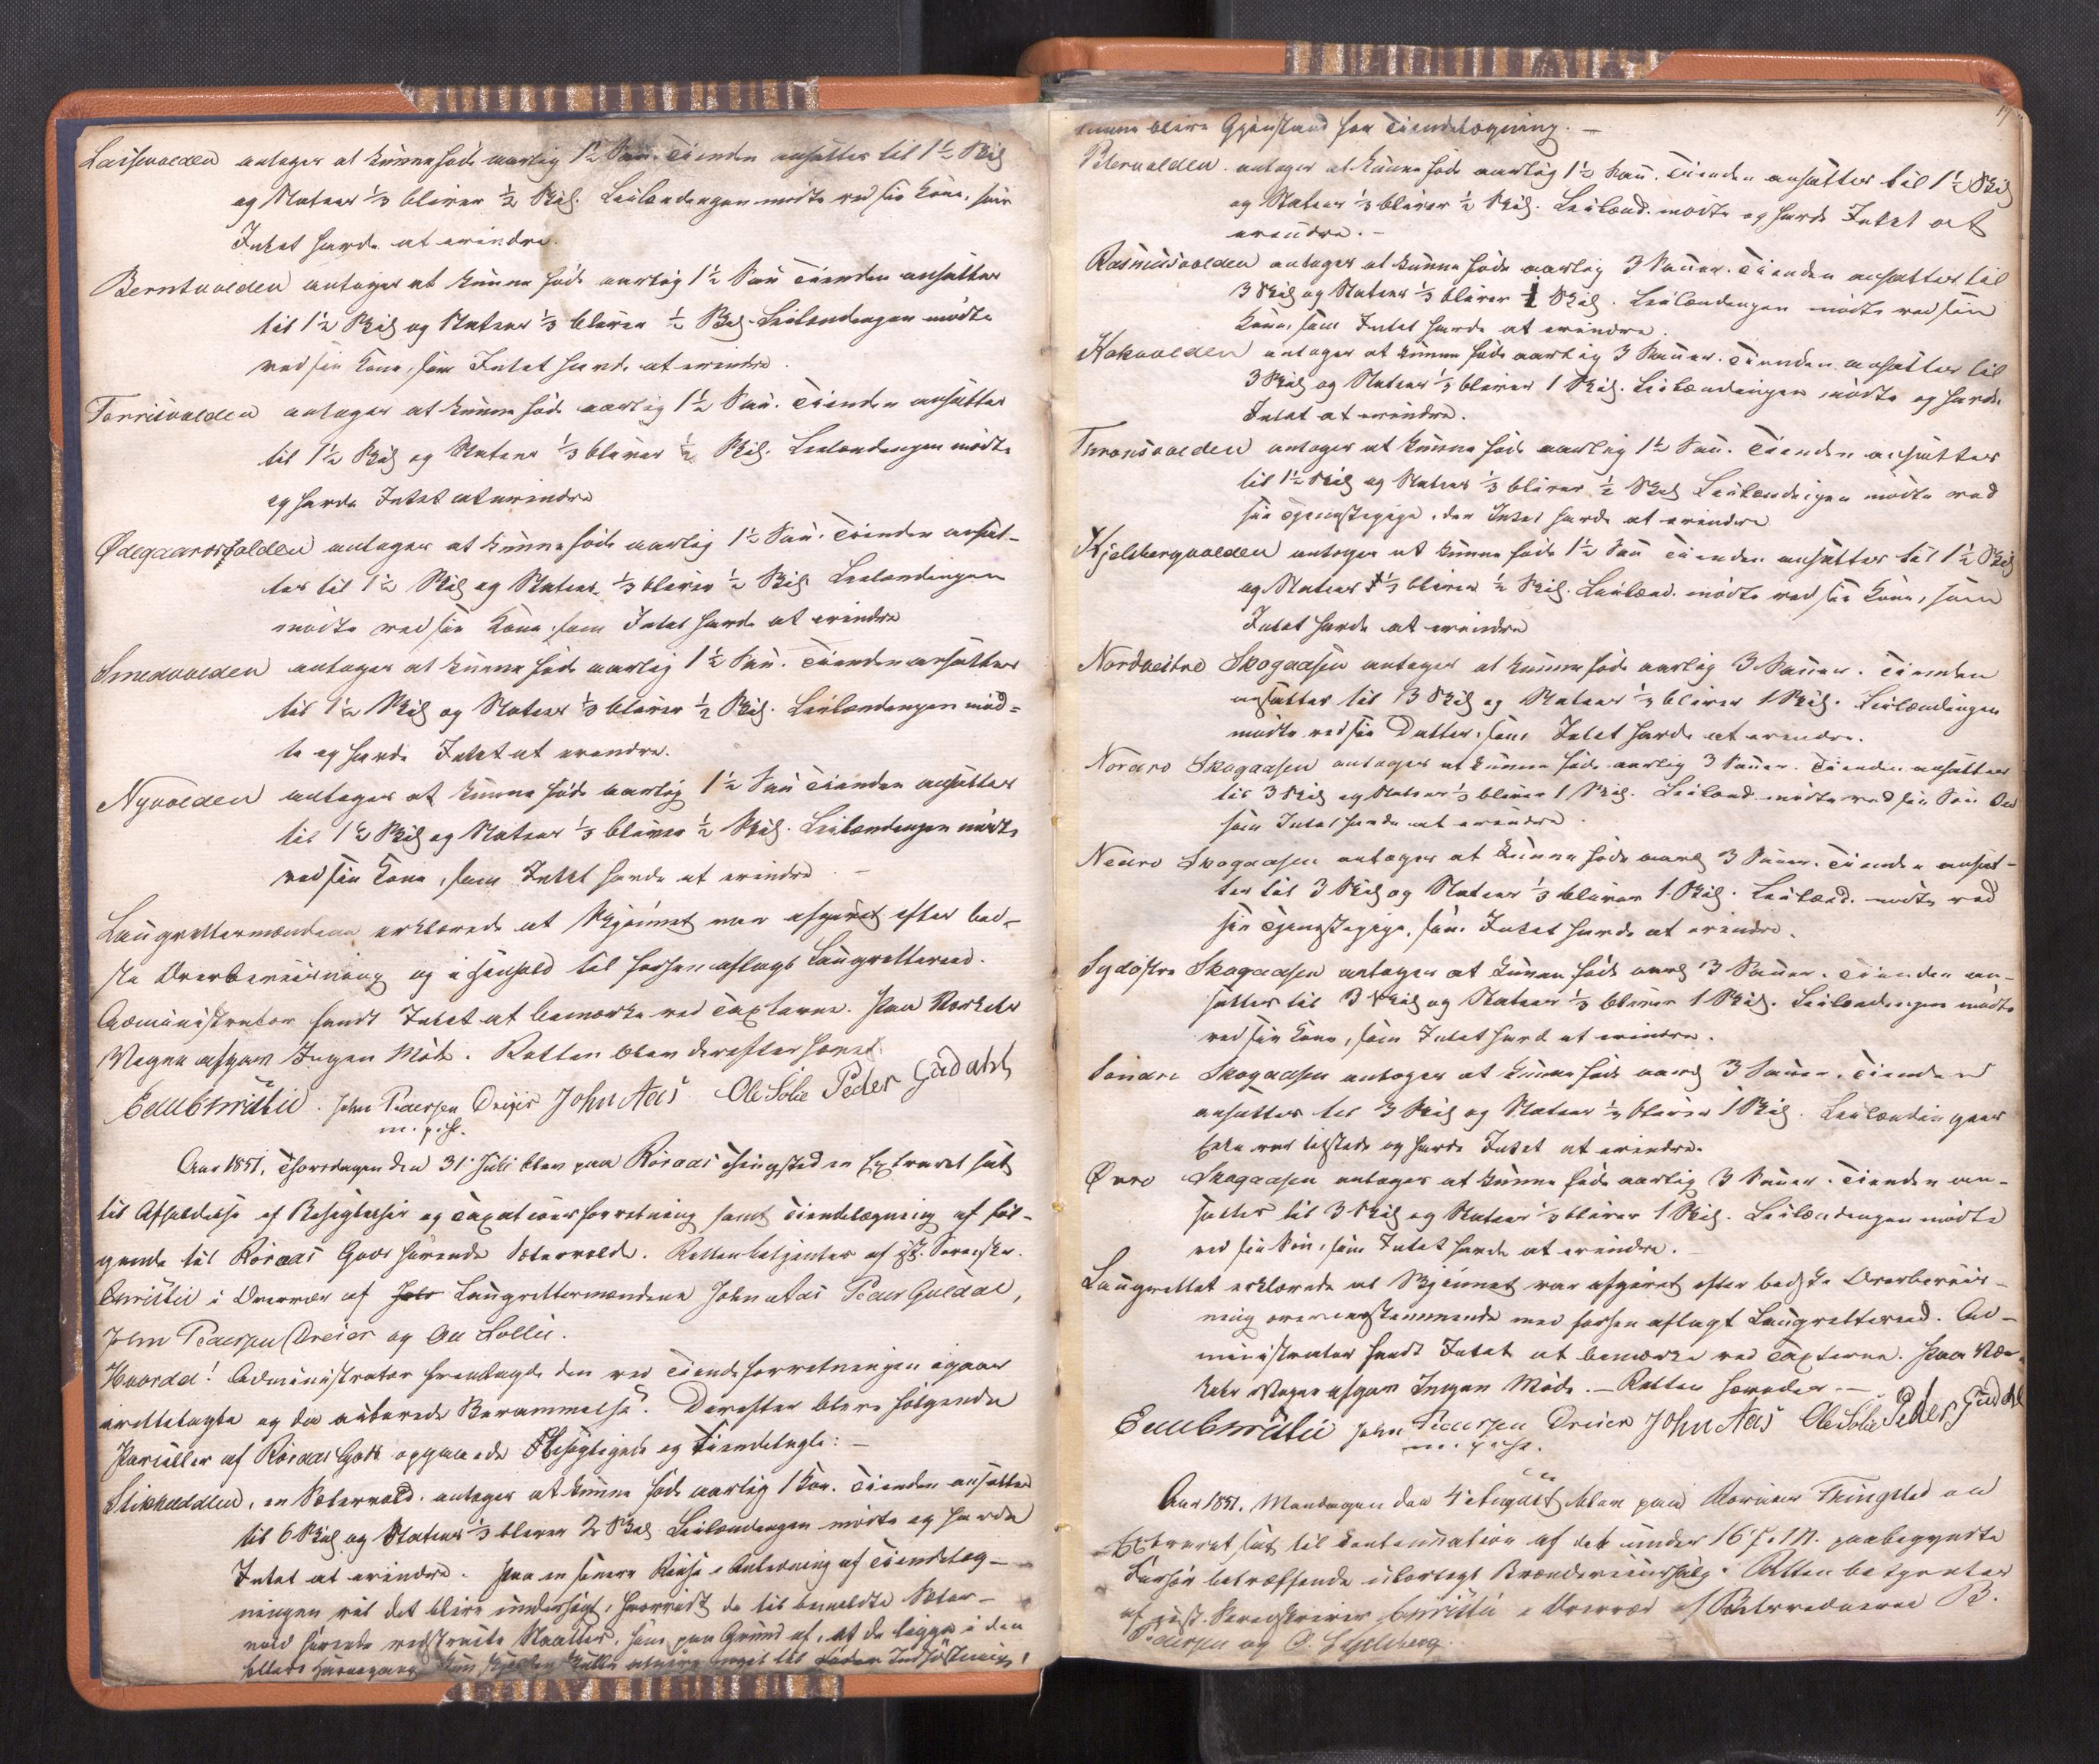 Larsvolden antages at kunne føde aarlig 1½ Sau. Tienden ansættes til 1½ Skil
og Statens ⅓ bliver ½ Skil. Leilændingen mødte ved sin Kone, som
Intet havde at erindre.
Berntvolden antages at kunne føde aarlig 1½ Sau Tienden ansættes
til 1½ Skil og Statens ⅓ bliver ½ Skil. Leilændingen mødte
ved sin Kone, som Intet havde at erindre
Torrisvolden antages at kunne føde aarlig 1½ Sau. Tienden ansættes
til 1½ Skil og Statens ⅓ bliver ½ Skil. Leilændingen mødte
og havde Intet at erindre
Ødegaardsvolden antages at kunne føde aarlig 1½ Sau. Tienden ansæt-
tes til 1½ Skil og Statens ⅓ bliver ½ Skil Leilændingen
mødte ved sin Kone som Intet havde at erindre
Smedvolden antages at kunne føde aarlig 1½ Sau. Tienden ansættes
til 1½ Skil og Statens ⅓ bliver ½ Skil. Leilændingen mød=
te og havde Intet at erindre.
Nyvolden antages at kunne føde aarlig 1½ Sau Tienden ansættes
til 1½ Skil og Statens ⅓ bliver ½ Skil. Leilændingen mødte
ved sin Kone, som Intet havde at erindre. —
Laugrettesmændene erklærede at Skjønnet var afgivet efter bed-
ste Overbeviisning og i Henhold til forhen aflagt Laugretteseed.
Administrator fandt Intet at bemærke ved Taxterne. Paa Værkets
Vegne afgav Ingen Møde. Retten blev derefter hævet.
Christie. John Pedersen Dreier John Aas Ole Solie Peder Guldahl
m. p. P.
Aar 1851, Thorsdagen den 31 Juli blev paa Röraas Thingsted en Extraret sat
til Afholdelse af Besigtelses og Taxationsforretning samt Tiendlægning af føl-
gende til Röraas Gods hørende Sætervolde. Retten betjentes af const. Sorenskr.
Christie i Overvær af Laugrettesmændene John Aas Peder Guldal,
John Pedersen Dreier og Ole Sollie.
Hvorda! Administrator fremlagde den ved Tiendeforretningen igaar
irettelagte og da anførte Berammelse. Derefter blev følgende
Parceller af Röraas Gods oppaaede Besigtigede og Tiendelagte: —
Stikkeddlen, en Sætervold. antages at kunne føde aarlig 1 Koe. Tienden ansættes
til 6 Skil og Statens ⅓ bliver 2 Skil Leilændingen mødte og havde
Intet at erindre. Paa en senere Reise i Anledning af Tiendelæg-
ningen vil det blive undersøgt, hvorvidt de til bemeldte Sæter-
vold hørende Slaatter, som paa Grund af, at de ligge i den
fælles Havnegang
kunne blive Gjenstand for Tiendelægning. —
Pedervolden. antages at kunne føde aarlig 1½ Sau. Tienden ansættes til 1½ Skil
og Statens ⅓ bliver ½ Skil. Leilænd. mødte og havde Intet at
erindre. —
Rasmusvolden antages at kunne føde aarlig 3 Sauer. Tienden ansættes til
3 Skil og Statens ⅓ bliver 1 Skil. Leilændingen mødte ved sin
Kone, som Intet havde at erindre.
Kokvolden antages at kunne føde aarlig 3 Sauer. Tienden ansættes til
3 Skil og Statens ⅓ bliver 1 Skil. Leilændingen mødte og havde
Intet at erindre.
Thronsvolden antages at kunne føde aarlig 1½ Sau. Tienden ansættes
til 1½ Skil og Statens ⅓ bliver ½ Skil Leilændingen mødte ved
sin Tjenestepige. der Intet havde at erindre
Kjelsbergvolden antages at kunne føde 1½ Sau Tienden ansættes til 1½ Skil
og Statens ⅓ bliver ½ Skil. Leilænd. mødte ved sin Kone, som
Intet havde at erindre
Nordvestre Skogaasen antages at kunne føde aarlig 3 Sauer. Tienden
ansættes til 3 Skil og Statens ⅓ bliver 1 Skil. Leilændingen
mødte ved sin Datter, som Intet havde at erindre.
Nordre Skogaasen antages at kunne føde aarlig 3 Sauer. Tienden ansættes
til 3 Skil og Statens ⅓ bliver 1 Skil. Leilænd. mødte ved sin Søn Ole
som Intet havde at erindre.
Nedre Skogaasen antages at kunne føde aarl 3 Sauer. Tienden ansæt-
tes til 3 Skil og Statens ⅓ bliver 1 Skil. Leilænd. mødte ved
sin Tjenestepige, som Intet havde at erindre.
Sydøstre Skogaasen antages at kunne føde aarl 3 Sauer. Tienden an-
sættes til 3 Skil og Statens ⅓ bliver 1 Skil. Leilændingen mødte
ved sin Kone, som Intet havd at erindre.
Søndre Skogaasen antages at kunne føde aarl 3 Sauer. Tienden
ansættes til 3 Skil og Statens ⅓ bliver 1 Skil. Leilændingens
Enke var tilstede og havde Intet at erindre.
Øvre Skogaasen antages at kunne føde aarlig 3 Sauer. Tienden an-
sættes til 3 Skil og Statens ⅓ bliver 1 Skil. Leilændingen mødte
ved sin Søn, som Intet havde at erindre.
Laugrettet erklærede at Skjønnet var afgivet efter bedste Overbeviis-
ning overensstemmende med forhen aflagt Laugretteseed. Ad-
ministrator fandt Intet at bemærke ved Taxterne. Paa Vær-
kets Vegne afgav Ingen Møde. — Retten hævedes. —
Christie John Pedersen Dreier John Aas Ole Solie Peder Guldahl
m. p. P.
Aar 1851. Mandagen den 4 August blev paa Röraas Thingsted en
Extraret sat til Continuation af det under 16 f. M. paabegyndte
Forhør betræffende ulovligt Brændeviinssalg. Retten betjentes
af const. Sorenskriver Christie i Overvær af Retsvidnerne B.
Pedersen og O. Engelsberg.